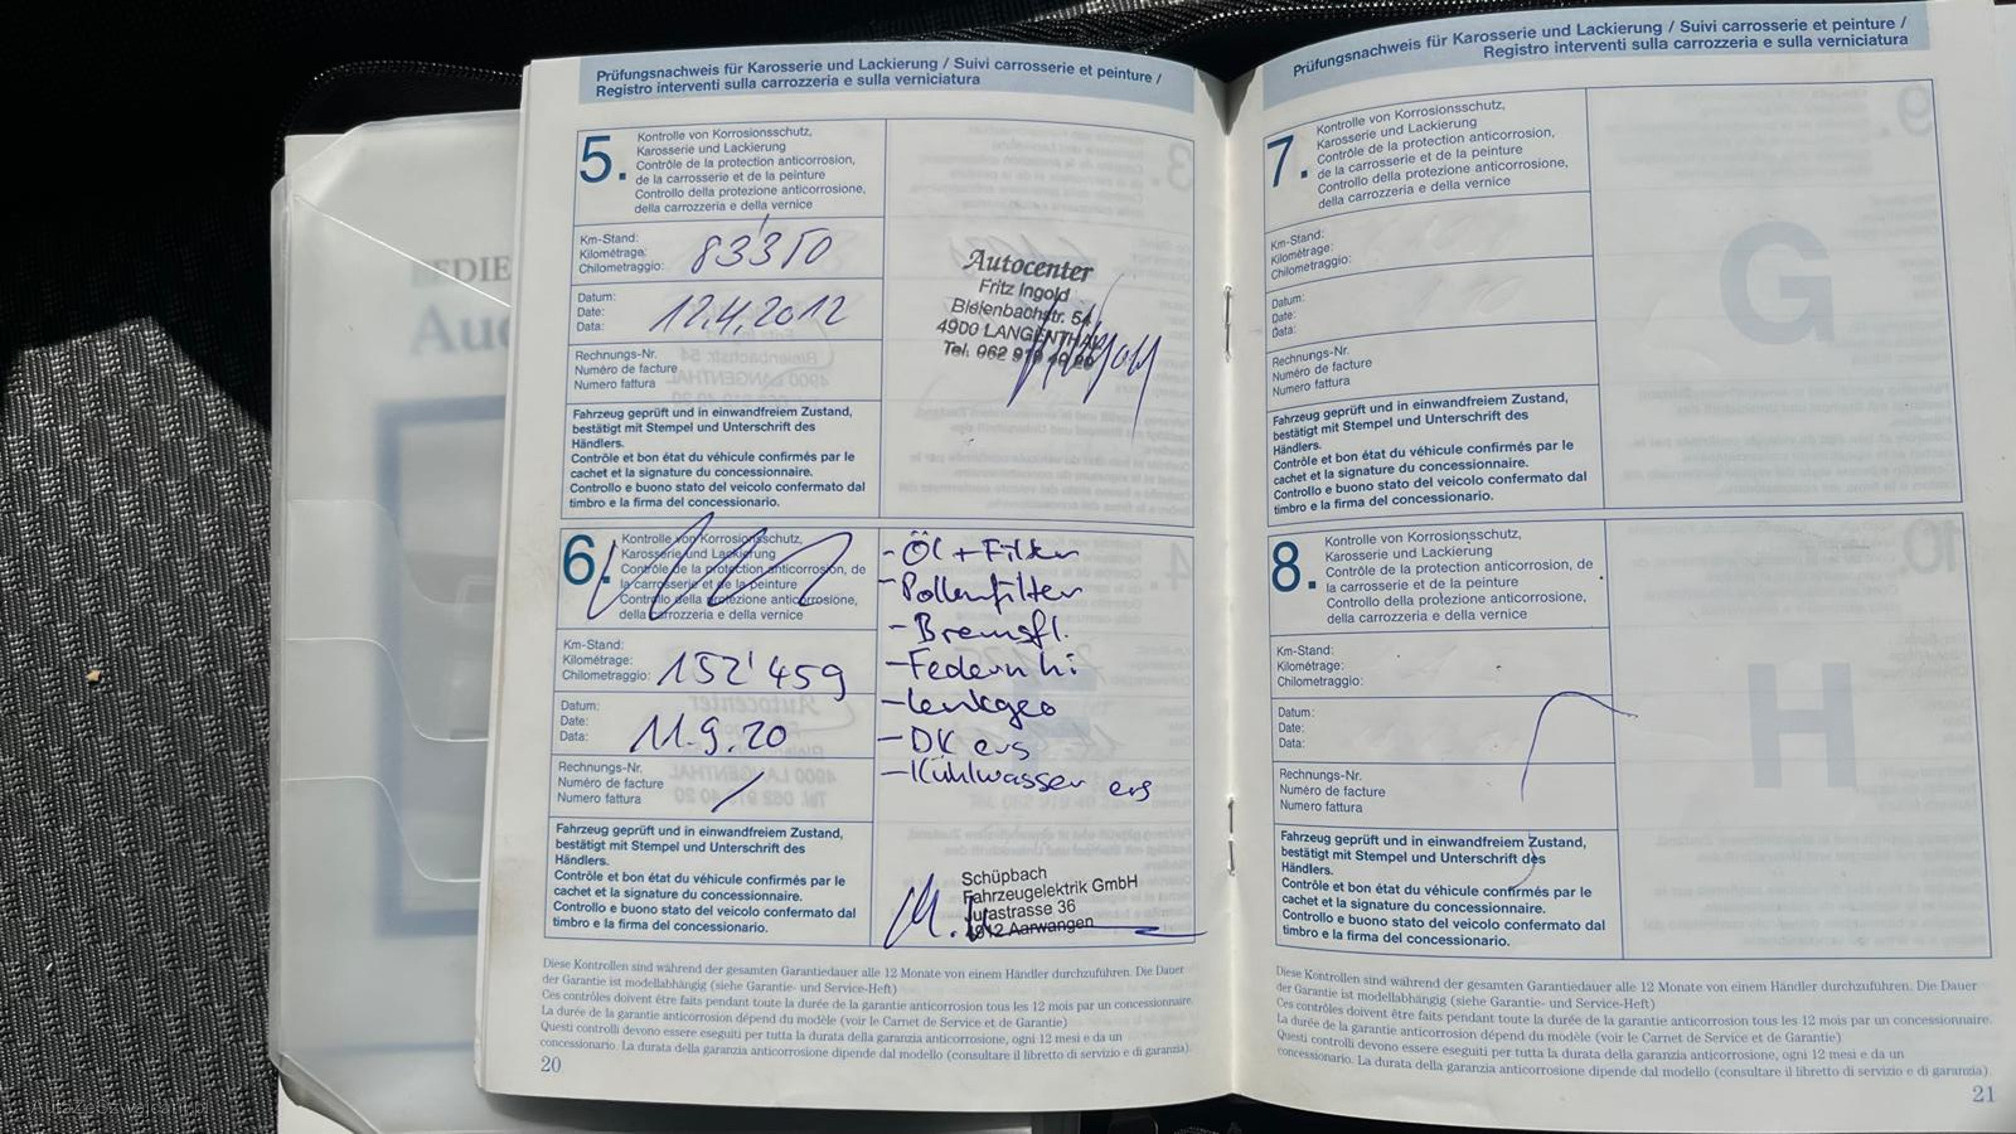 Prüfungsnachweis für Karosserie und Lackierung / Suivi carrosserie et peinture /
Registro interventi sulla carrozzeria e sulla verniciatura
5.
Kontrolle von Korrosionsschutz,
Karosserie und Lackierung
Contrôle de la protection anticorrosion,
de la carrosserie et de la peinture
Controllo della protezione anticorrosione,
della carrozzeria e della vernice
Km-Stand:
Kilométrage:
Chilometraggio:
83'350
Datum:
Date:
Data:
12.4.2012
Rechnungs-Nr.
Numéro de facture
Numero fattura
Fahrzeug geprüft und in einwandfreiem Zustand,
bestätigt mit Stempel und Unterschrift des
Händlers.
Contrôle et bon état du véhicule confirmés par le
cachet et la signature du concessionnaire.
Controllo e buono stato del veicolo confermato dal
timbro e la firma del concessionario.
Autocenter
Fritz Ingold
Bleienbachstr. 54
4900 LANGENTHAL
Tel. 062 919 40 20
6.
Kontrolle von Korrosionsschutz,
Karosserie und Lackierung
Contrôle de la protection anticorrosion, de
la carrosserie et de la peinture
Controllo della protezione anticorrosione,
della carrozzeria e della vernice
Km-Stand:
Kilométrage:
Chilometraggio:
152'459
Datum:
Date:
Data:
11.9.20
Rechnungs-Nr.
Numéro de facture
Numero fattura
/
Fahrzeug geprüft und in einwandfreiem Zustand,
bestätigt mit Stempel und Unterschrift des
Händlers.
Contrôle et bon état du véhicule confirmés par le
cachet et la signature du concessionnaire.
Controllo e buono stato del veicolo confermato dal
timbro e la firma del concessionario.
- Öl + Filter
- Pollenfilter
- Bremsfl.
- Federn hi
- Lenkgeo
- DK ers
- Kühlwasser ers
Schüpbach
Fahrzeugelektrik GmbH
Jurastrasse 36
4912 Aarwangen
Diese Kontrollen sind während der gesamten Garantiedauer alle 12 Monate von einem Händler durchzuführen. Die Dauer
der Garantie ist modellabhängig (siehe Garantie- und Service-Heft)
Ces contrôles doivent être faits pendant toute la durée de la garantie anticorrosion tous les 12 mois par un concessionnaire.
La durée de la garantie anticorrosion dépend du modèle (voir le Carnet de Service et de Garantie)
Questi controlli devono essere eseguiti per tutta la durata della garanzia anticorrosione, ogni 12 mesi e da un
concessionario. La durata della garanzia anticorrosione dipende dal modello (consultare il libretto di servizio e di garanzia).
20
Prüfungsnachweis für Karosserie und Lackierung / Suivi carrosserie et peinture /
Registro interventi sulla carrozzeria e sulla verniciatura
7.
Kontrolle von Korrosionsschutz,
Karosserie und Lackierung
Contrôle de la protection anticorrosion,
de la carrosserie et de la peinture
Controllo della protezione anticorrosione,
della carrozzeria e della vernice
Km-Stand:
Kilométrage:
Chilometraggio:
Datum:
Date:
Data:
Rechnungs-Nr.
Numéro de facture
Numero fattura
Fahrzeug geprüft und in einwandfreiem Zustand,
bestätigt mit Stempel und Unterschrift des
Händlers.
Contrôle et bon état du véhicule confirmés par le
cachet et la signature du concessionnaire.
Controllo e buono stato del veicolo confermato dal
timbro e la firma del concessionario.
G
8.
Kontrolle von Korrosionsschutz,
Karosserie und Lackierung
Contrôle de la protection anticorrosion, de
la carrosserie et de la peinture
Controllo della protezione anticorrosione,
della carrozzeria e della vernice
Km-Stand:
Kilométrage:
Chilometraggio:
Datum:
Date:
Data:
Rechnungs-Nr.
Numéro de facture
Numero fattura
Fahrzeug geprüft und in einwandfreiem Zustand,
bestätigt mit Stempel und Unterschrift des
Händlers.
Contrôle et bon état du véhicule confirmés par le
cachet et la signature du concessionnaire.
Controllo e buono stato del veicolo confermato dal
timbro e la firma del concessionario.
H
Diese Kontrollen sind während der gesamten Garantiedauer alle 12 Monate von einem Händler durchzuführen. Die Dauer
der Garantie ist modellabhängig (siehe Garantie- und Service-Heft)
Ces contrôles doivent être faits pendant toute la durée de la garantie anticorrosion tous les 12 mois par un concessionnaire.
La durée de la garantie anticorrosion dépend du modèle (voir le Carnet de Service et de Garantie)
Questi controlli devono essere eseguiti per tutta la durata della garanzia anticorrosione, ogni 12 mesi e da un
concessionario. La durata della garanzia anticorrosione dipende dal modello (consultare il libretto di servizio e di garanzia).
21
AutaZeSzwajcarii.pl